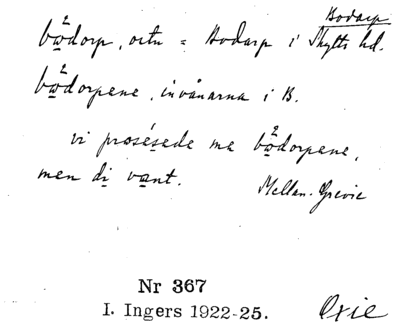 Bodarp
bω̲²dorp, ortn = Bodarp i Skytts hd.
bω̲²dorpene, invånarna i B.
vi prosésede ma bω̲²dorpene,
men di̲ va̲nt.
Mellan-Grevie
Nr 367
I. Ingers 1922-25.
Oxie